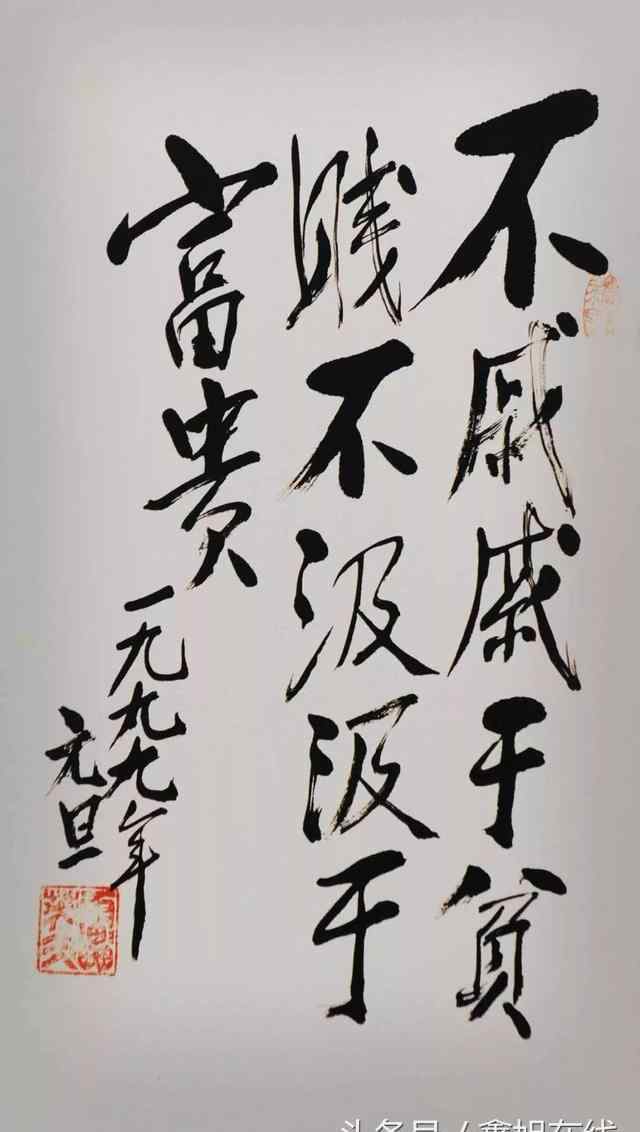 不戚戚于貧
賤不汲汲于
富貴
一九九九年
元旦
头条号 / 鑫旭在线